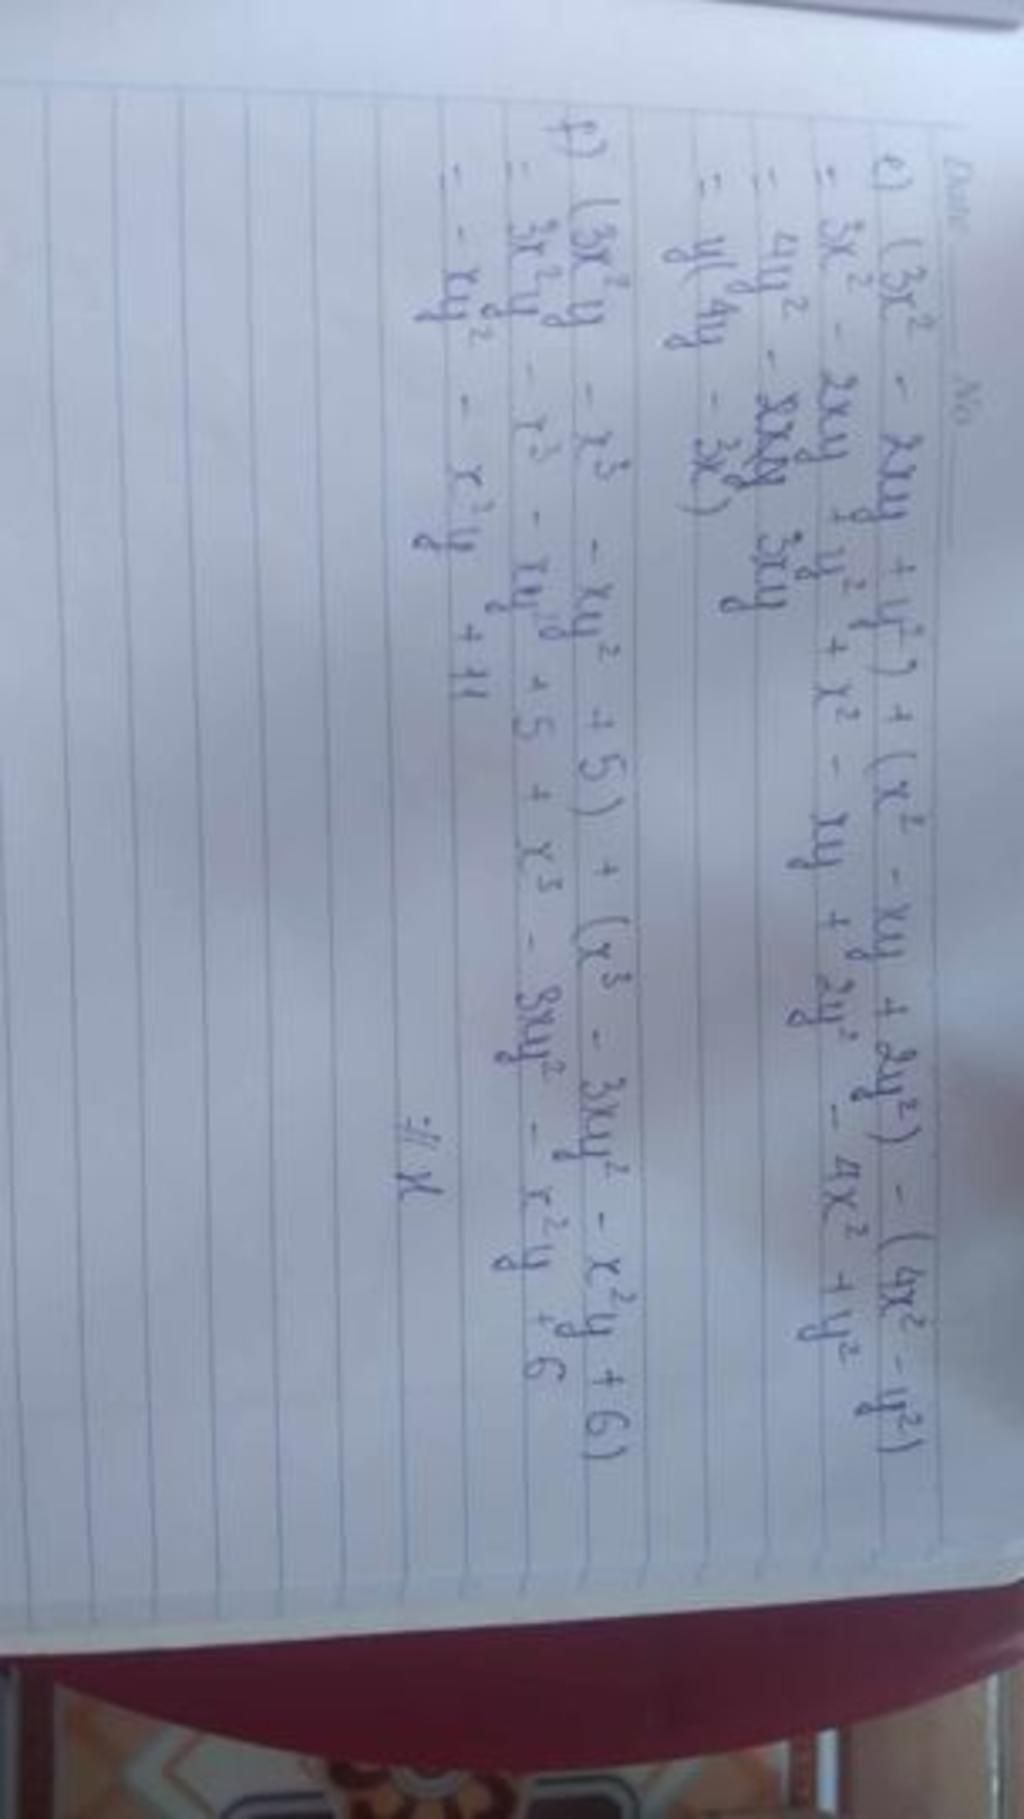 Date No
e) (3x² - 2xy + y²) + (x² - xy + 2y²) - (4x² - y²)
= 3x² - 2xy + y² + x² - xy + 2y² - 4x² + y²
= 4y² - 3xy
= y(4y - 3x)
f) (3x²y - x³ - xy² + 5) + (x³ - 3xy² - x²y + 6)
= 3x²y - x³ - xy² + 5 + x³ - 3xy² - x²y + 6
= - xy² - x²y + 11